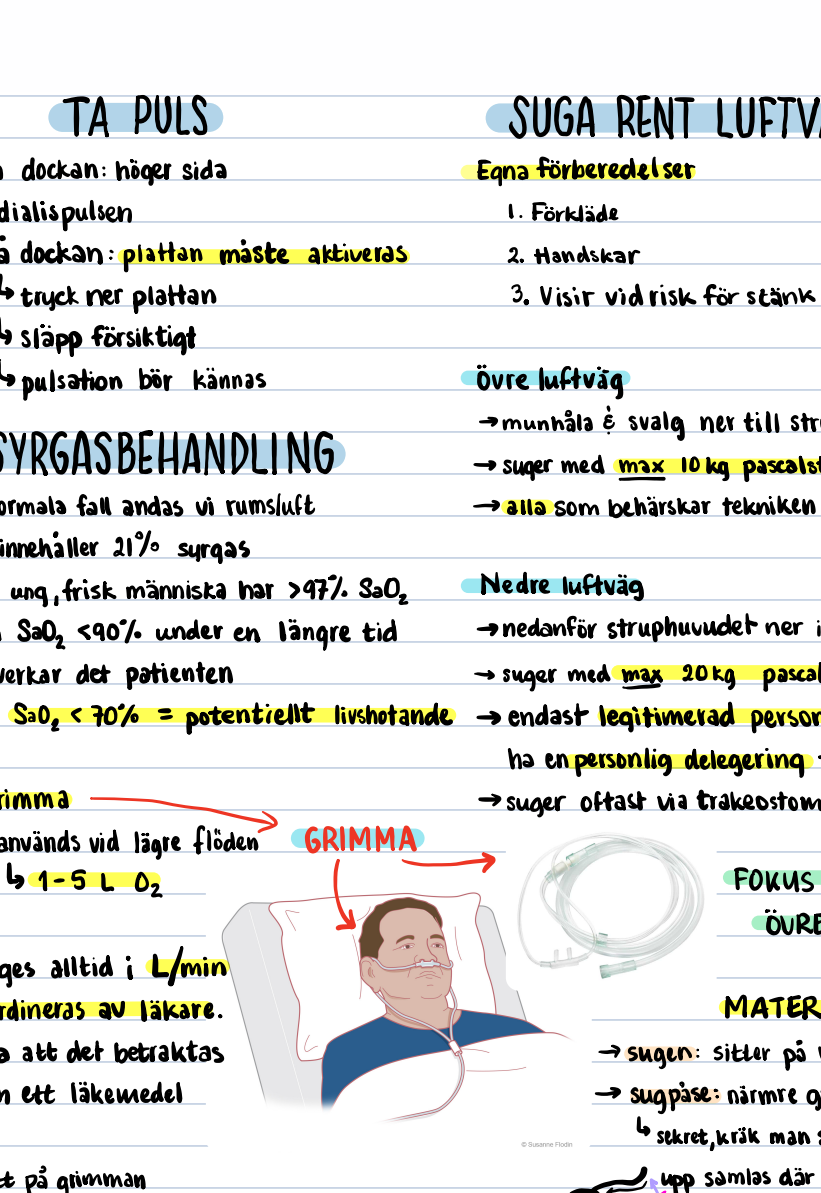 TA PULS
dockan: höger sida
dialispulsen
å dockan: plattan måste aktiveras
↳ tryck ner plattan
↳ släpp försiktigt
↳ pulsation bör kännas
SYRGASBEHANDLING
ormala fall andas vi rumsluft
innehåller 21% syrgas
ung, frisk människa har >97% SaO₂
SaO₂ <90% under en längre tid
verkar det patienten
SaO₂ < 70% = potentiellt livshotande
rimma
används vid lägre flöden
↳ 1-5 L O₂
ges alltid i L/min
rdineras av läkare.
a att det betraktas
m ett läkemedel
tt på grimman
SUGA RENT LUFTVÄ
Egna förberedelser
1. Förkläde
2. Handskar
3. Visir vid risk för stänk
Övre luftväg
→ munhåla & svalg ner till stru
→ suger med max 10 kg pascalst
→ alla som behärskar tekniken
Nedre luftväg
→ nedanför struphuvudet ner i
→ suger med max 20 kg pascal
→ endast legitimerad person
ha en personlig delegering
→ suger oftast via trakeostom
GRIMMA
FOKUS
ÖVRE
MATER
→ sugen: sitter på v
→ sugpåse: närmre g
↳ sekret, kräk man s
upp samlas där
© Susanne Flodin